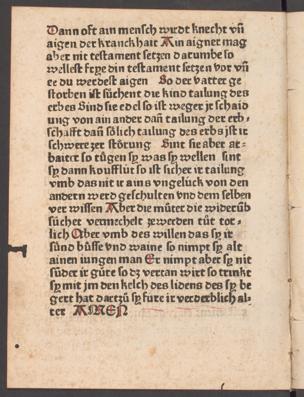 Dann oft ain mensch wirdt knecht vñ
aigen der kranckhait Ain aigner mag
aber nit testament setzen darumbe so
wellest frye din testament setzen vor vñ
ee du werdest aigen So der vatter ge
storben ist süchent die kind tailung des
erbes Sind sie edel so ist weger je schaid
ung von ain ander dañ tailung der erb⸗
schafft dañ sölich tailung des erbs ist ir
schwere zer störung Sint sie aber ar⸗
baiter so tůgen sy was sy wellen sint
sy dann koufflüt so ist sicher ir tailung
vmb das nit ir ains vngelück von den
andern werd geschulten vnd dem selben
ver wissen Aber die můter die widerůb
sůchet vermechelt ze werden tůt tor⸗
lich Ober vmb des willen das sy ir
sünd büsse vnd waine so nimpt sy alt
ainen iungen man Er nimpt aber sy nit
sůder ir gůte so dz vertan wirt so trinkt
sy mit jm den kelch des lidens des sy be
gert hat dartzů sy fure ir verderblich al⸗
ter AMEN